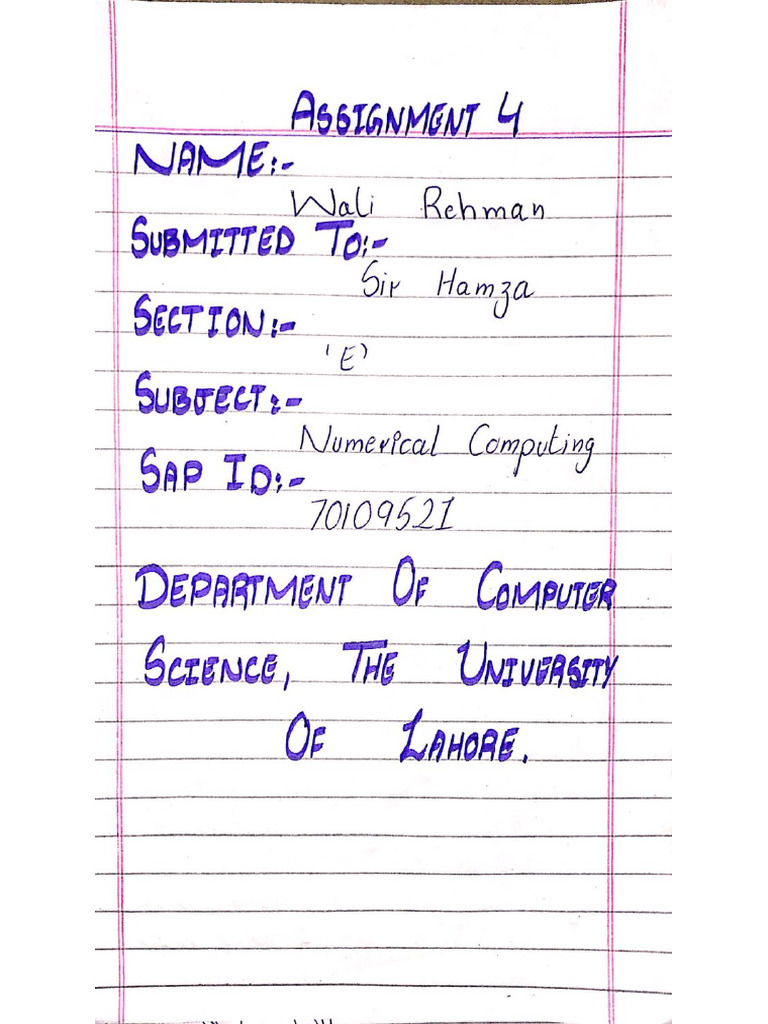 ASSIGNMENT 4
NAME:-
Wali Rehman
SUBMITTED TO:-
Sir Hamza
SECTION:-
'E'
SUBJECT:-
Numerical Computing
SAP ID:-
70109521
DEPARTMENT OF COMPUTER
SCIENCE, THE UNIVERSITY
OF LAHORE.